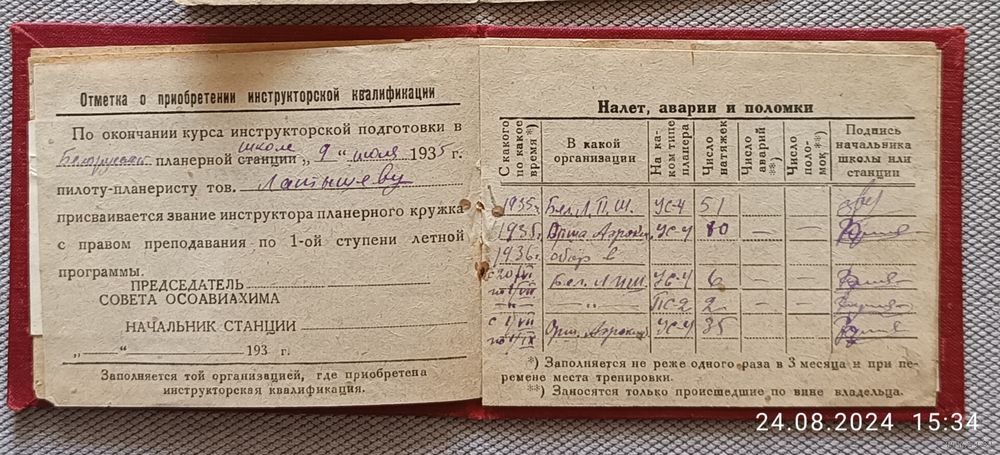 Отметка о приобретении инструкторской квалификации
По окончании курса инструкторской подготовки в
школе
планерной станции „9“ июля 1935 г.
пилоту-планеристу тов. Латышеву
присваивается звание инструктора планерного кружка
с правом преподавания по 1-ой ступени летной
программы.
ПРЕДСЕДАТЕЛЬ
СОВЕТА ОСОАВИАХИМА
НАЧАЛЬНИК СТАНЦИИ
„ “ 193 г.
Заполняется той организацией, где приобретена
инструкторская квалификация.
Налет, аварии и поломки
С какого по какое время*)
В какой организации
На каком типе планера
Число натяжек
Число аварий **)
Число поломок**)
Подпись начальника школы или станции
1935г. Бел. Л.П.Ш. УС-4 51
1935г. Орша УС-4 10 — —
1936г.
Бел. УС-4 6 — —
—„— —„— ПС-2 2 — —
УС-4 35 — —
*) Заполняется не реже одного раза в 3 месяца и при пе-
ремене места тренировки.
**) Заносятся только происшедшие по вине владельца.
24.08.2024 15:34